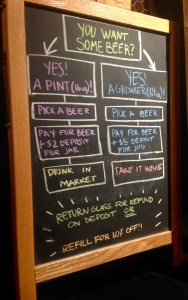 YOU WANT
SOME BEER?
YES!
A PINT (16oz)!
PICK A BEER
PAY FOR BEER
+ $2 DEPOSIT
FOR JAR
DRINK IN
MARKET
YES!
A GROWLER (64oz)!
PICK A BEER
PAY FOR BEER
+ $5 DEPOSIT
FOR JUG
TAKE IT HOME
RETURN GLASS FOR REFUND
ON DEPOSIT OR
REFILL FOR 10% OFF!!